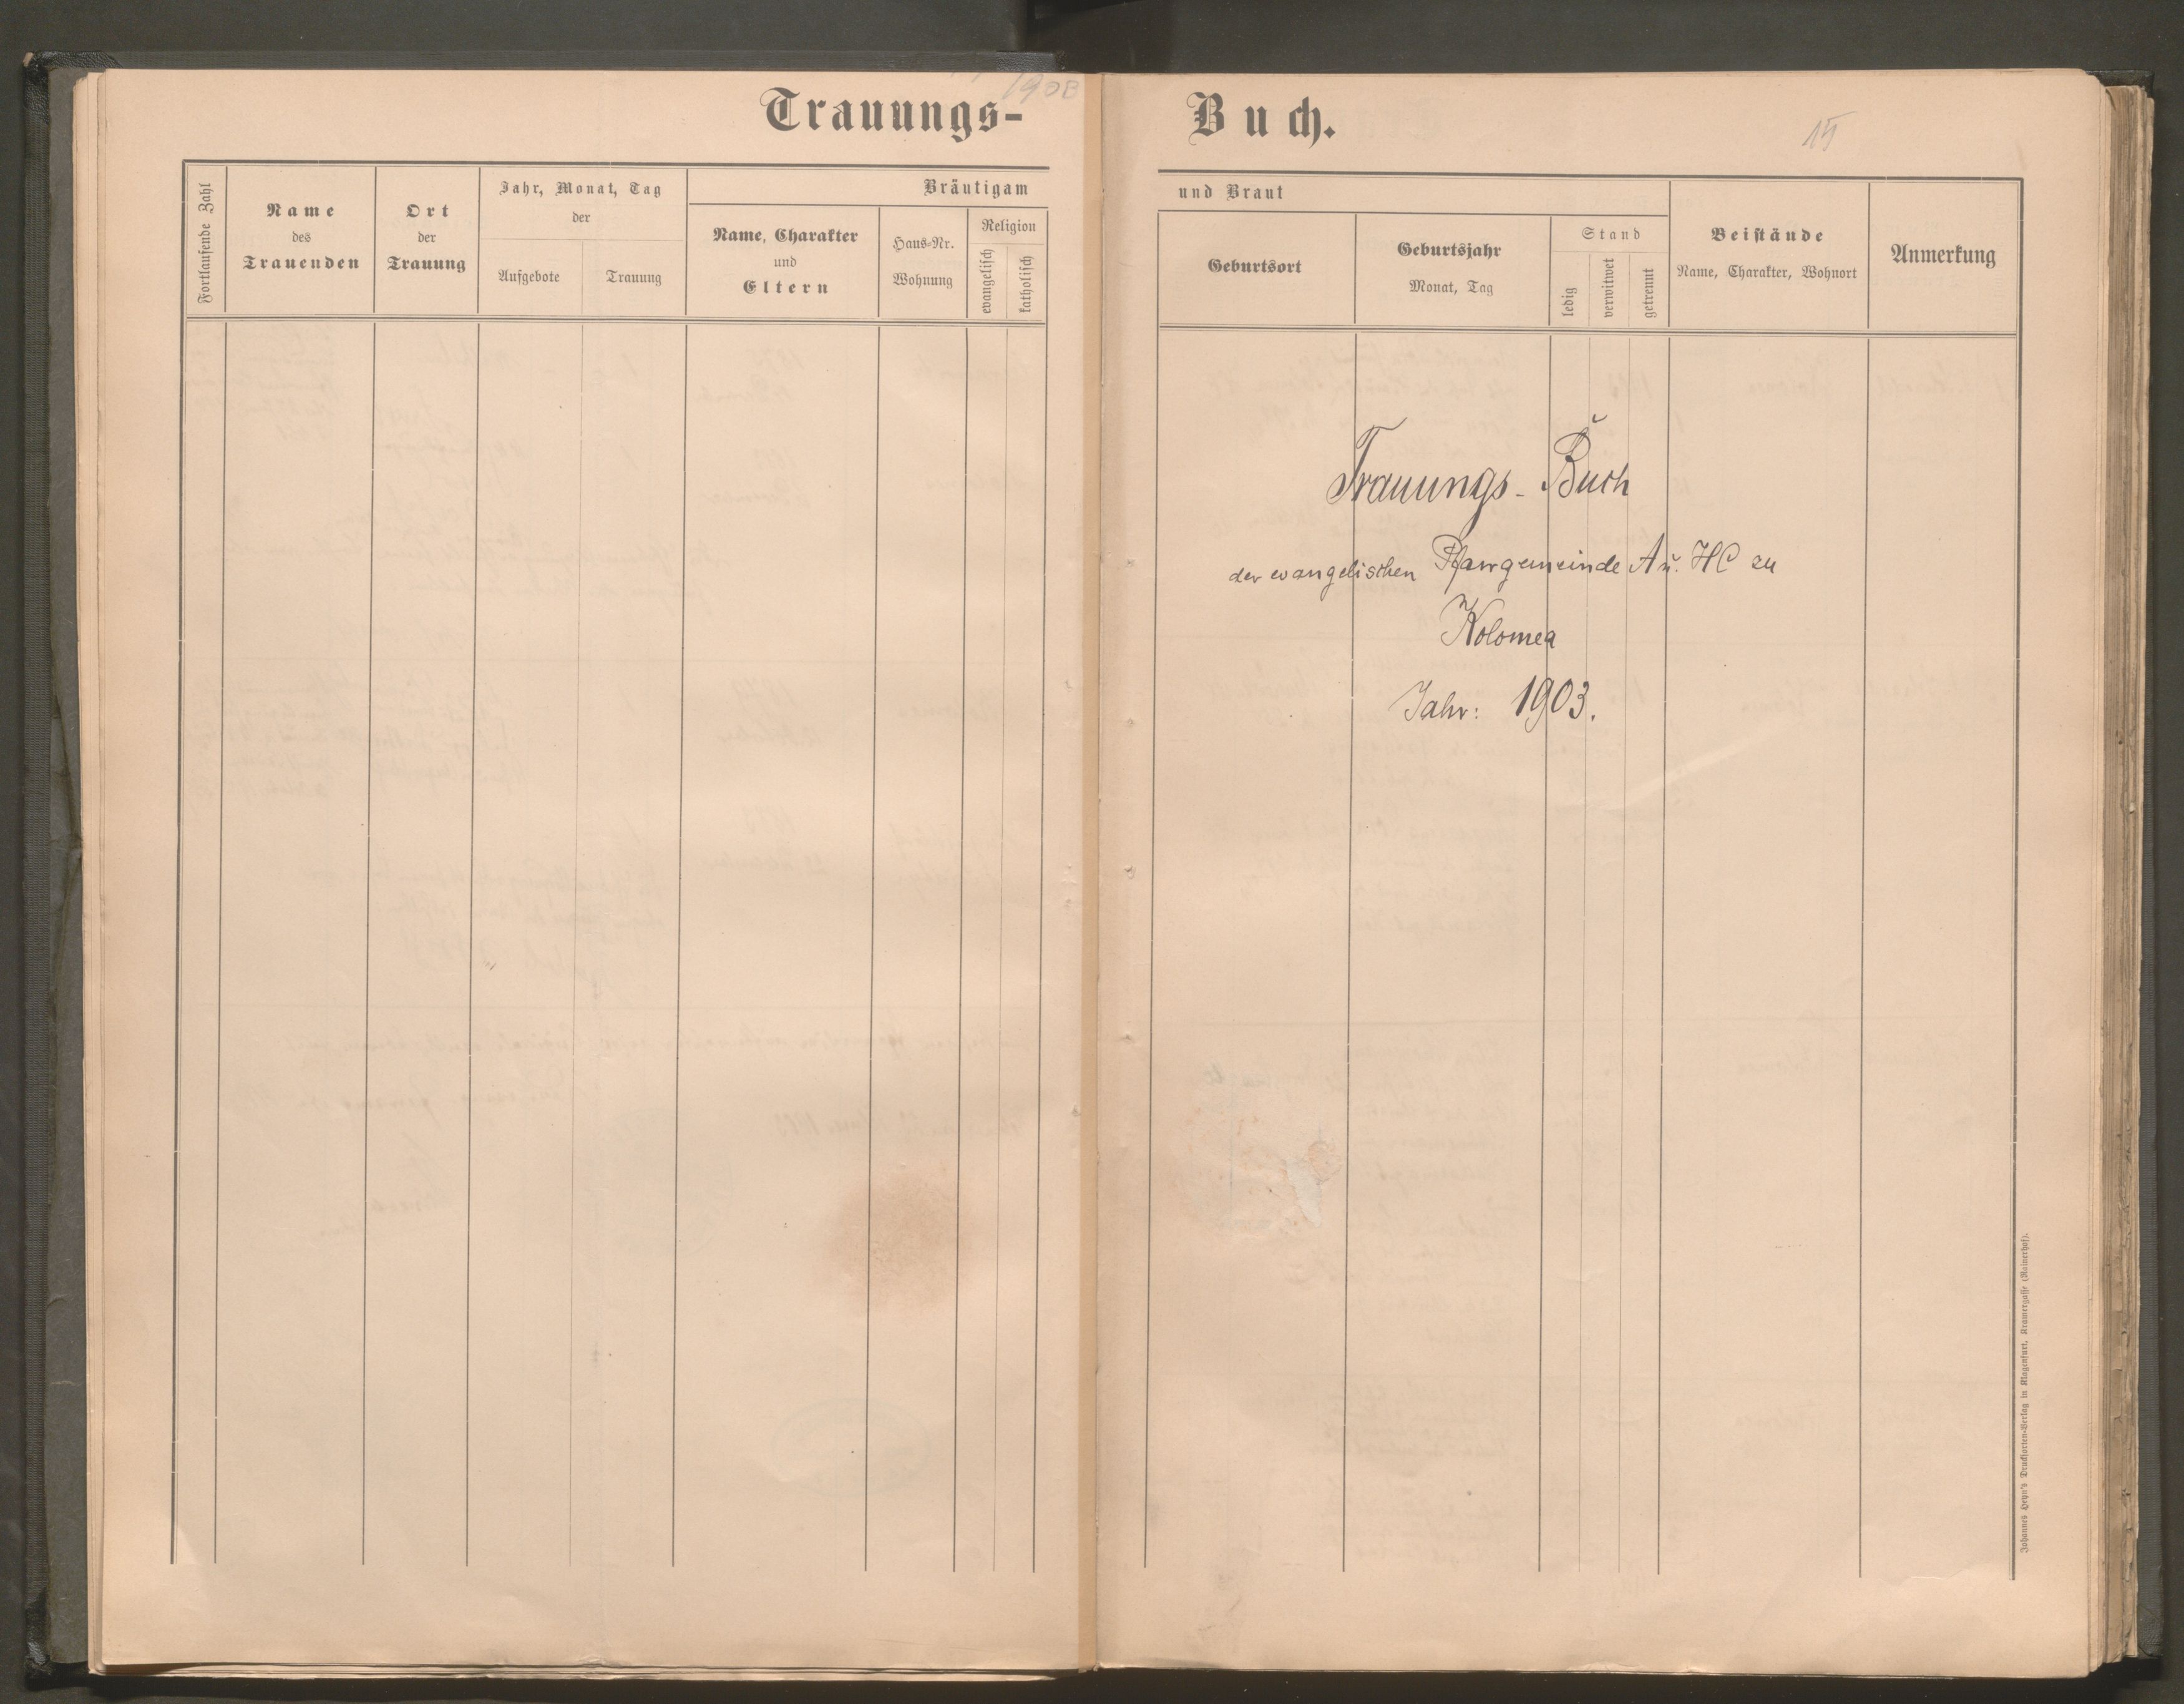 1903
Trauungs-
Buch.
15
Fortlaufende Zahl
Name
des
Trauenden
Ort
der
Trauung
Jahr, Monat, Tag
der
Aufgebote
Trauung
Bräutigam
Name, Charakter
und
Eltern
Haus-Nr.
Wohnung
Religion
evangelisch
katholisch
und Braut
Geburtsort
Geburtsjahr
Monat, Tag
Stand
ledig
verwitwet
getrennt
Beistände
Name, Charakter, Wohnort
Anmerkung
Trauungs-Buch
der evangelischen Pfarrgemeinde A u. HC zu
Kolomea
Jahr: 1903.
Johannes Heyn's Drucksorten-Verlag in Klagenfurt, Kramergasse (Rainerhof).